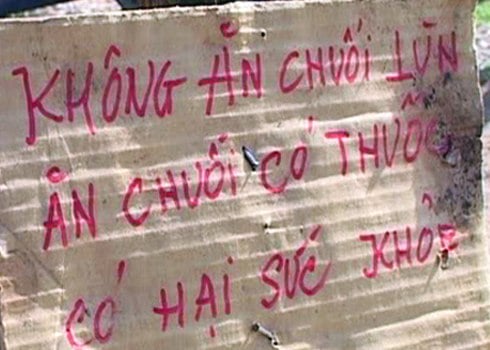 KHÔNG ĂN CHUỐI LÙN
ĂN CHUỐI CÓ THUỐC
CÓ HẠI SỨC KHỎE